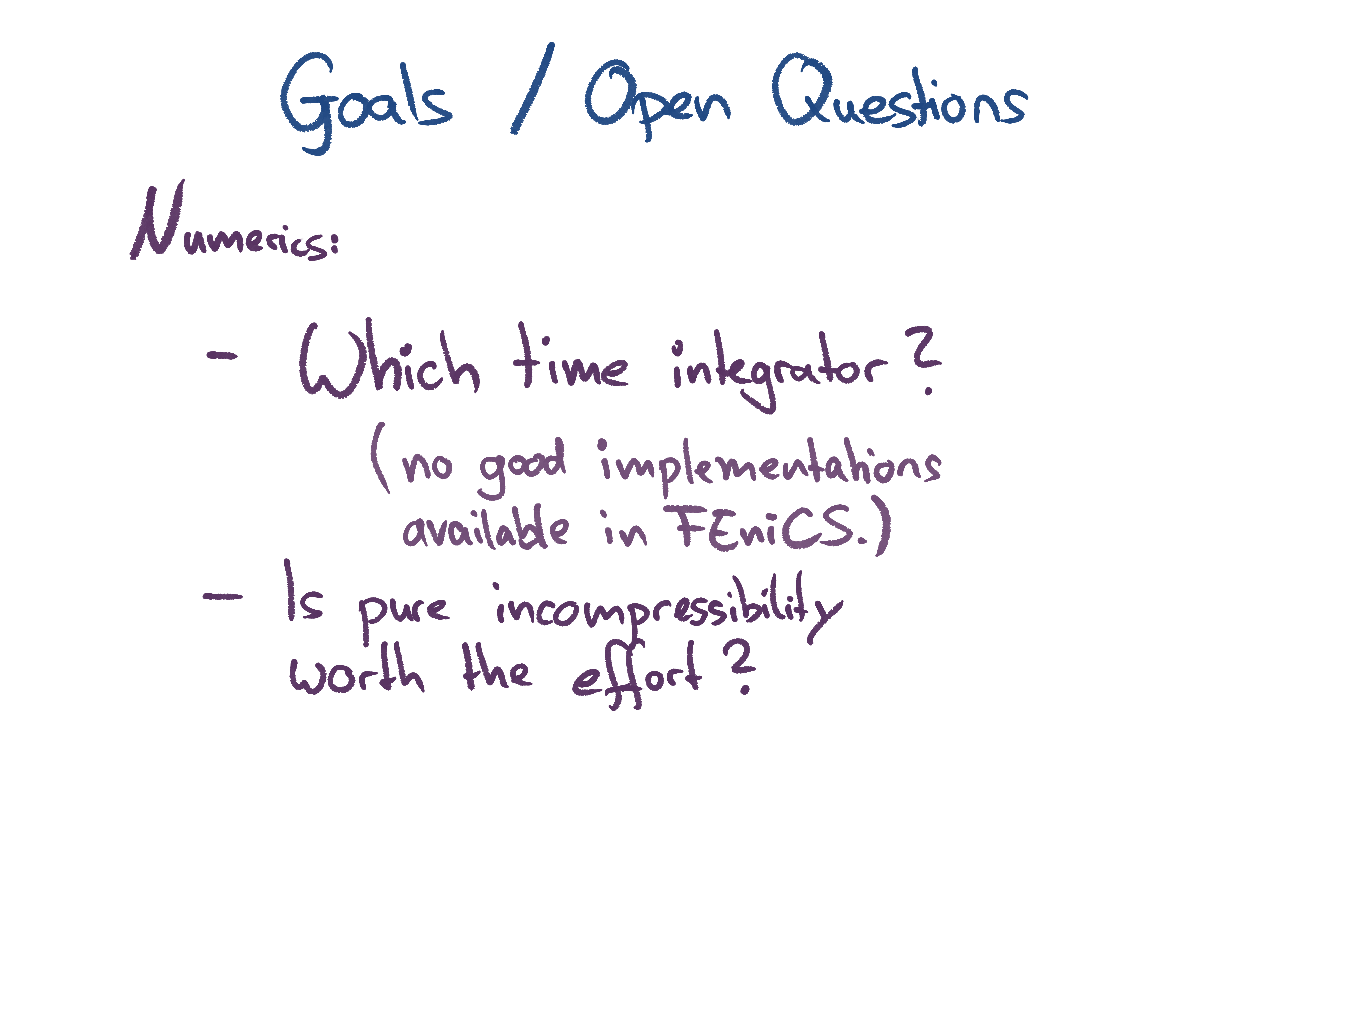 Goals / Open Questions
Numerics:
- Which time integrator?
(no good implementations
available in FEniCS.)
- Is pure incompressibility
worth the effort?